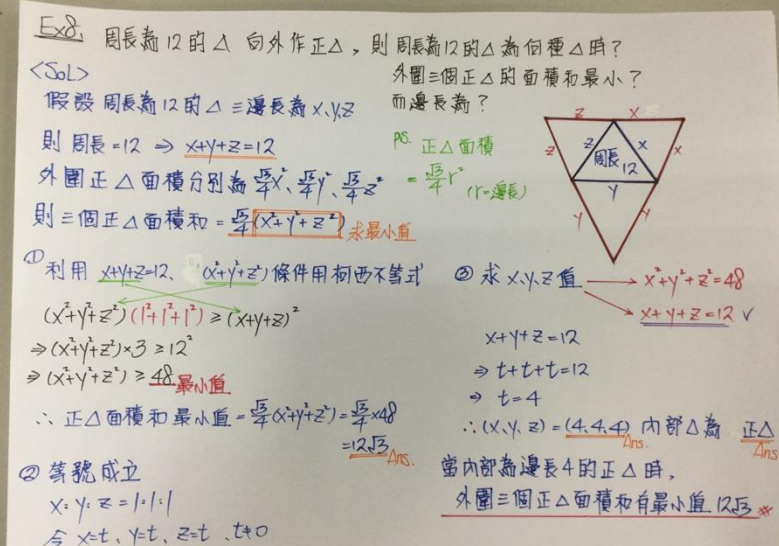 Ex8. 周長為12的△ 向外作正△，則周長為12的△為何種△時？
外圍三個正△的面積和最小？
而邊長為？
<SoL>
假設周長為12的△三邊長為x,y,z
則周長=12 ⇒ x+y+z=12
外圍正△面積分別為 √3/4x²、√3/4y²、√3/4z²
則三個正△面積和 = √3/4(x²+y²+z²) 求最小值
PS. 正△面積
= √3/4 r² (r=邊長)
z x
z z x x
周長12
y
y y
① 利用 x+y+z=12、(x²+y²+z²)條件用柯西不等式
(x²+y²+z²)(1²+1²+1²) ≥ (x+y+z)²
⇒ (x²+y²+z²)×3 ≥ 12²
⇒ (x²+y²+z²) ≥ 48 最小值
∴ 正△面積和最小值 = √3/4(x²+y²+z²) = √3/4×48
=12√3 Ans.
② 等號成立
x:y:z=1:1:1
令 x=t、y=t、z=t、t≠0
③ 求x,y,z值 → x²+y²+z²=48
→ x+y+z=12 ✓
x+y+z=12
⇒ t+t+t=12
⇒ t=4
∴(x,y,z)=(4,4,4) 內部△為 正△
Ans. Ans
當內部為邊長4的正△時，
外圍三個正△面積和有最小值 12√3 ※